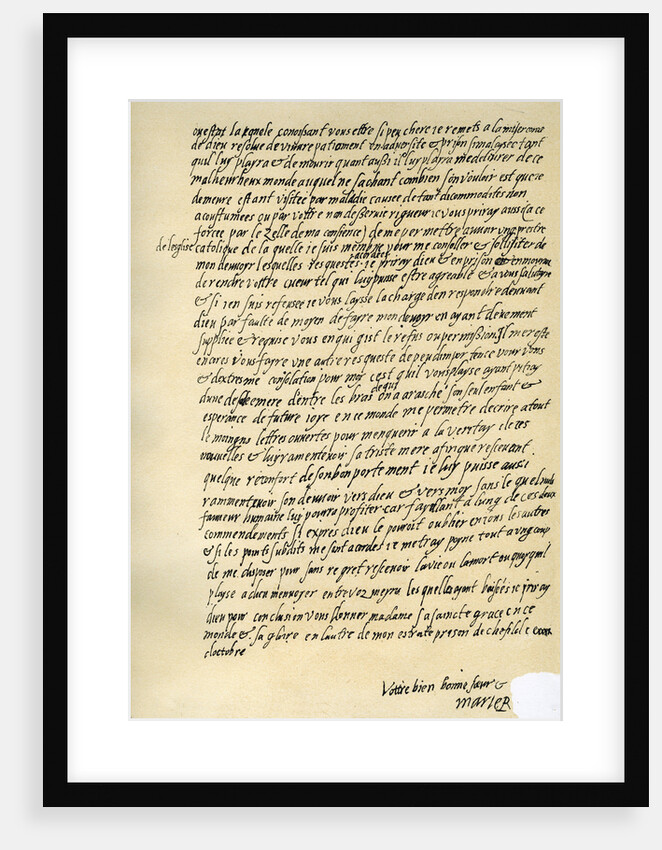 conoissant vous estre si peu chere ie remets a la
de dieu resolue de vivre patiemment en adversite & prison tant
quil luy playra & de mourir quant aussi il luy playra me delivrer de ce
malheurheux monde auquel ne sachant combien son vouloir est que ie
demeure estant visitee par maladie causee de tant dicommodites non
acoustumees ou par vottre non desservie rigueur ie vous priray aussi (a ce
forcee par le zelle de ma consience) de me permettre avvoir un prestre
de leglise catolique de la quelle ie suis membre pour me consoller & sollisiter de
mon devvoyr lesquelles requestes acordees ie priray dieu & en prison &
de rendre vottre cueur tel qui luy puisse estre agreable & a vous
& si ien suis refusee ie vous laysse la charge den respondre devant
dieu par faulte de moyen de fayre mon devvoyr en ayant devement
supliee & requise vous en qui gist le refus ou permission Il me reste
encores vous fayre une autre requeste de peu dimportence pour vous
& dextresme consolation pour moy cest quil vous playse ayant pitay
dune desolee mere dentre les bras de qui on a arasche son seul enfant &
esperance de future ioye en ce monde me permetre decrire a tout
le moigns lettres ouvertes pour menquerir a la veritay de ces
nouvelles & luy ramentevoir sa triste mere afin que recevant
quelque reconfort de son bon portement ie luy puisse aussi
rammentevoir son devvoir vers dieu & vers moy sans le quel nulle
faveur humaine luy pourra profiter car fayllant a lung de ces deux
commendements si expres dieu le pouroit oublier en tous les autres
& si les points subdits me sont acordes ie metray poyne tout
de me disposer pour sans regret recevoir la vie ou la mort
playse a dieu menvoyer entrevoz meyns les quelles ayant baisees ie priray
dieu pour conclusion vous donner madame sa saincte grace en ce
monde & sa gloire en lautre de mon estrate prison de chefild ce
doctobre
Vottre bien bonne sœur &
MarieR